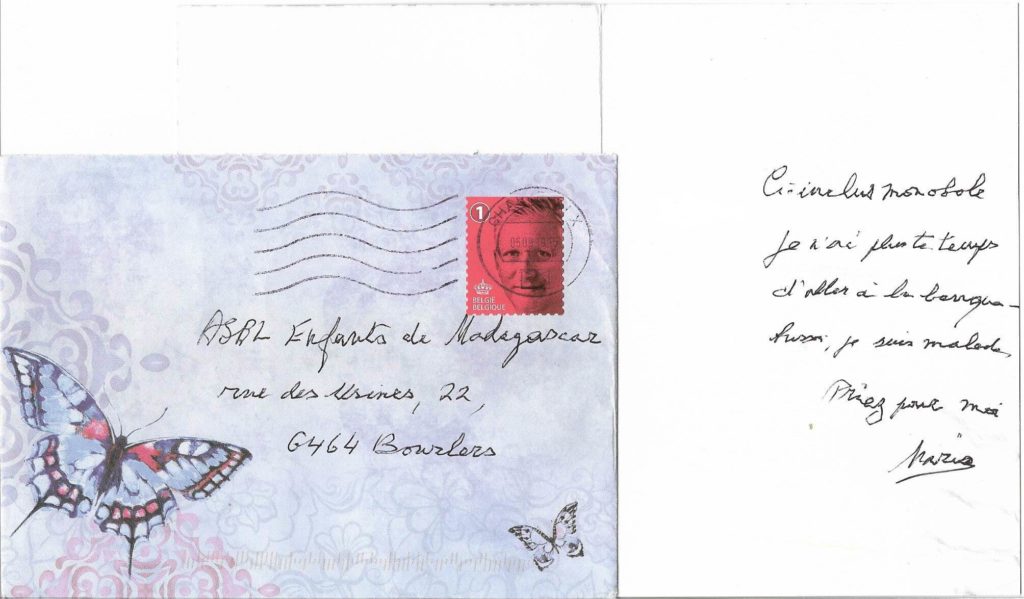 1
CHA X
BELGIË
BELGIQUE
ASBL Enfants de Madagascar
rue des Usines, 22,
6464 Bourlers
Ci-inclus mon obole
Je n'ai plus le temps
d'aller à la banque
Aussi, je suis malade,
Priez pour moi
Maria